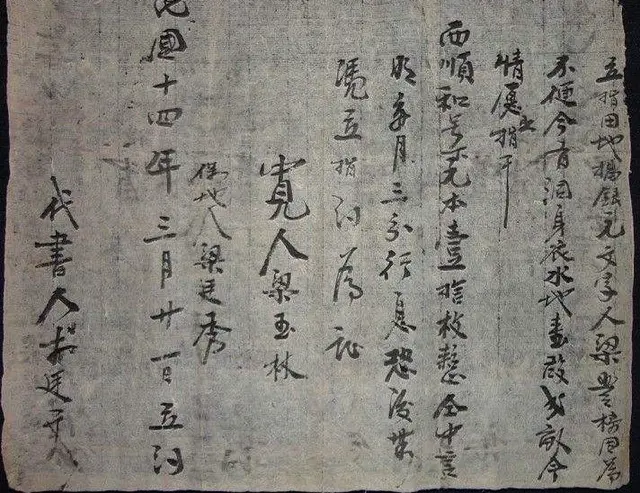 立指田地揭銀元文字人梁豐榜因為
不便今有泗身底水地壹段式畝今
情愿立指于
西順和号元本壹拾枚整仝中言
明每月三分行息恐後無
憑立指約為証
寛人梁玉枝
保地人梁廷秀
民國十四年三月廿一日立約
代書人廷